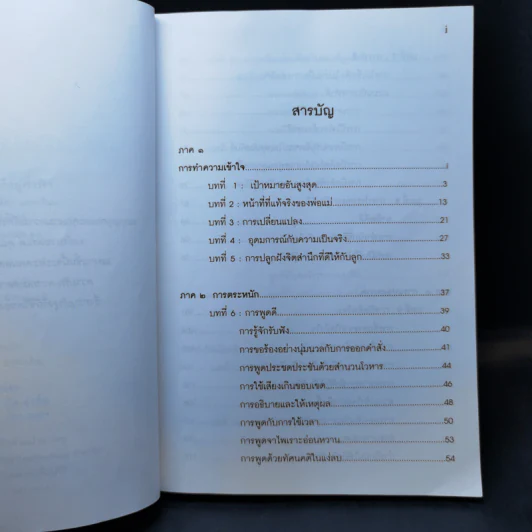 i
สารบัญ
ภาค ๑
การทำความเข้าใจ....................i
บทที่ 1 : เป้าหมายอันสูงสุด....................3
บทที่ 2 : หน้าที่ที่แท้จริงของพ่อแม่....................13
บทที่ 3 : การเปลี่ยนแปลง....................21
บทที่ 4 : อุดมการณ์กับความเป็นจริง....................27
บทที่ 5 : การปลูกฝังจิตสำนึกที่ดีให้กับลูก....................33
ภาค ๒ การตระหนัก....................37
บทที่ 6 : การพูดดี....................39
การรู้จักรับฟัง....................40
การขอร้องอย่างนุ่มนวลกับการออกคำสั่ง....................41
การพูดประชดประชันด้วยสำนวนโวหาร....................44
การใช้เสียงเกินขอบเขต....................46
การอธิบายและให้เหตุผล....................48
การพูดกับการใช้เวลา....................50
การพูดจาไพเราะอ่อนหวาน....................53
การพูดด้วยทัศนคติในแง่ลบ....................54